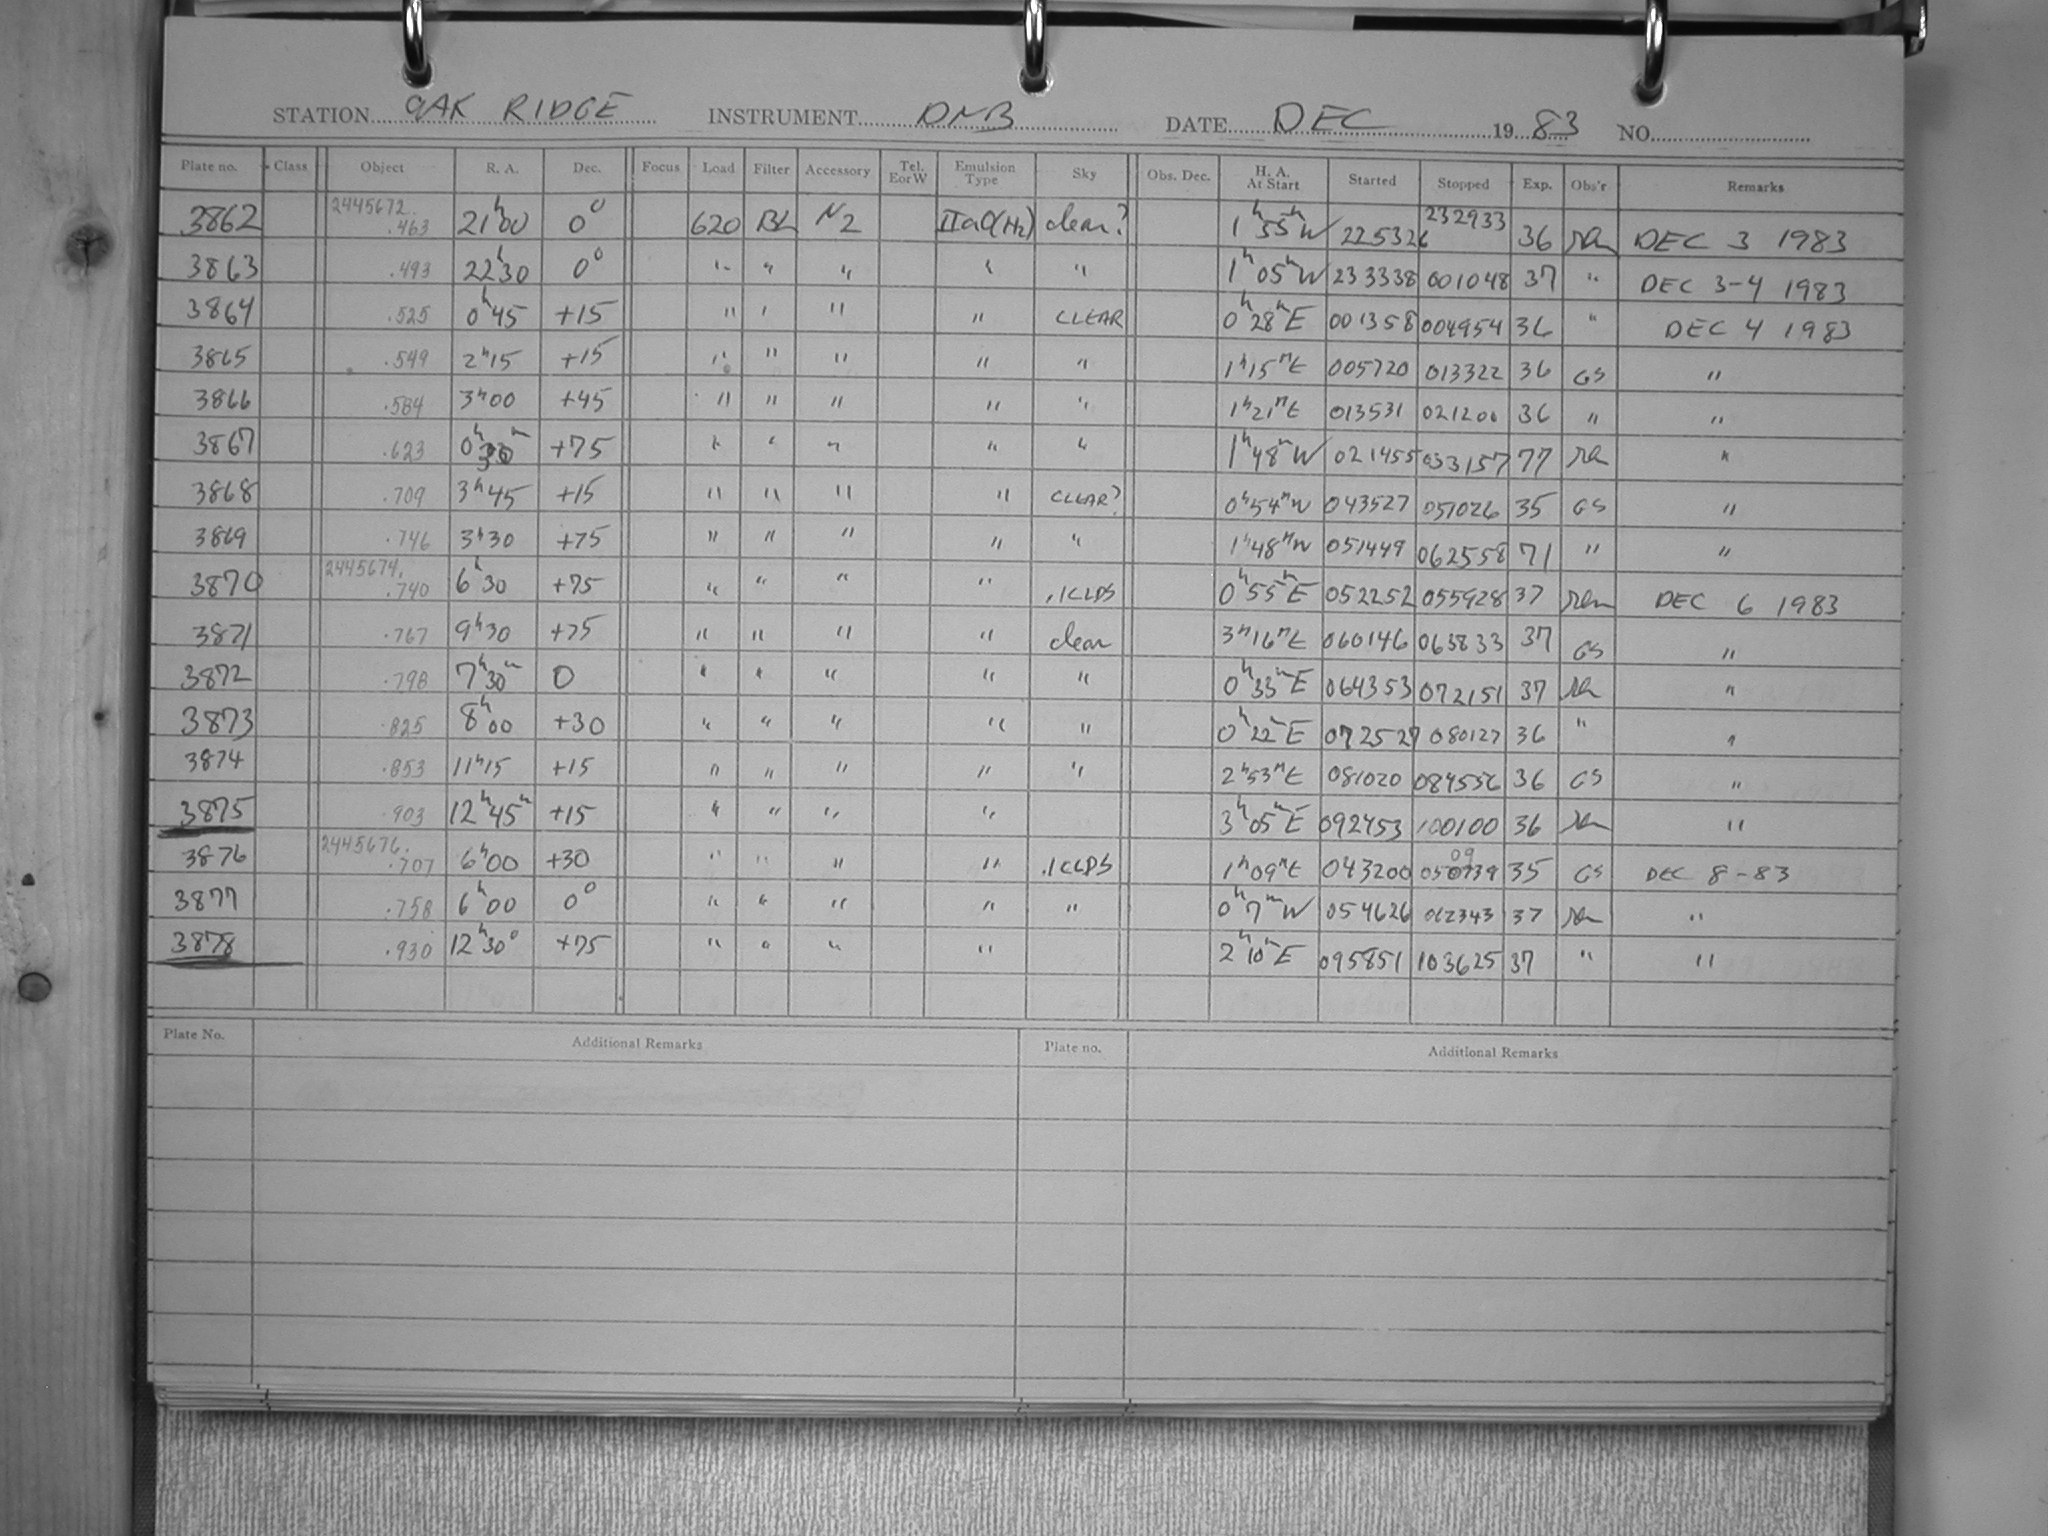 STATION OAK RIDGE INSTRUMENT DNB DATE DEC 19 83 NO.
Plate no. Class Object R. A. Dec. Focus Load Filter Accessory Tel. E or W Emulsion Type Sky Obs. Dec. H. A. At Start Started Stopped Exp. Obs'r Remarks
3862 2445672. .463 21h00 0° 620 BL N2 IIaO(H2) clear? 1h55mW 225326 232933 36 DEC 3 1983
3863 .493 22h30 0° " " " " " 1h05mW 233338 001048 37 " DEC 3-4 1983
3864 .525 0h45 +15 " " " " CLEAR 0h28mE 001358 004954 36 " DEC 4 1983
3865 .549 2h15 +15 " " " " " 1h15mE 005720 013322 36 GS "
3866 .584 3h00 +45 " " " " " 1h21mE 013531 021200 36 " "
3867 .623 0h30m +75 " " " " " 1h48mW 021455 033157 77 "
3868 .709 3h45 +15 " " " " CLEAR? 0h54mW 043527 051026 35 GS "
3869 .746 3h30 +75 " " " " " 1h48mW 051449 062558 71 " "
3870 2445674. .740 6h30 +75 " " " " .1CLDS 0h55mE 052252 055928 37 DEC 6 1983
3871 .767 9h30 +75 " " " " clear 3h16mE 060146 063833 37 GS "
3872 .798 7h30m 0 " " " " " 0h33mE 064353 072151 37 "
3873 .825 8h00 +30 " " " " " 0h22mE 072527 080127 36 " "
3874 .853 11h15 +15 " " " " " 2h53mE 081020 084556 36 GS "
3875 .903 12h45m +15 " " " " 3h05mE 092453 100100 36 "
3876 2445676. .707 6h00 +30 " " " " .1CLDS 1h09mE 043200 050739 09 35 GS DEC 8-83
3877 .758 6h00 0° " " " " " 0h7mW 054626 062343 37 "
3878 .930 12h30° +75 " " " " 2h10mE 095851 103625 37 " "
Plate No. Additional Remarks Plate no. Additional Remarks